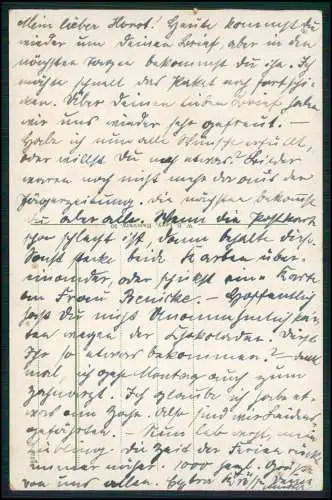 Mein lieber Horst! Heute kommst du
wieder um deinen Brief, aber in den
nächsten Tagen bekommst du ihn. Ich
möchte schnell das Paket noch fortschi-
cken. Über deinen lieben Brief haben
wir uns wieder sehr gefreut. –
Habe ich nun alle Wünsche erfüllt,
oder willst du noch etwas? Bilder
waren noch nicht mehr da aus der
Jägerzeitung. die nächsten bekommst
du aber alle. Wenn die Postkarte
schon schlecht ist, dann behalte die.
Sonst stecke beide Karten über-
einander, oder schickst eine Karte
an Frau – Hoffentlich
hast du nicht Unannehmlichkei-
ten wegen der Schokolade. Dürft
Ihr so etwas bekommen? –
mal, ich gehe Montag auch zum
Zahnarzt. Ich glaube ich habe et-
was am Zahn. Also sind wir Leidens-
gefährten. – Nun leb wohl, mein
Liebling. die Zeit der Ferien rückt
immer näher. 1000 herzl. Grüße
von uns allen.